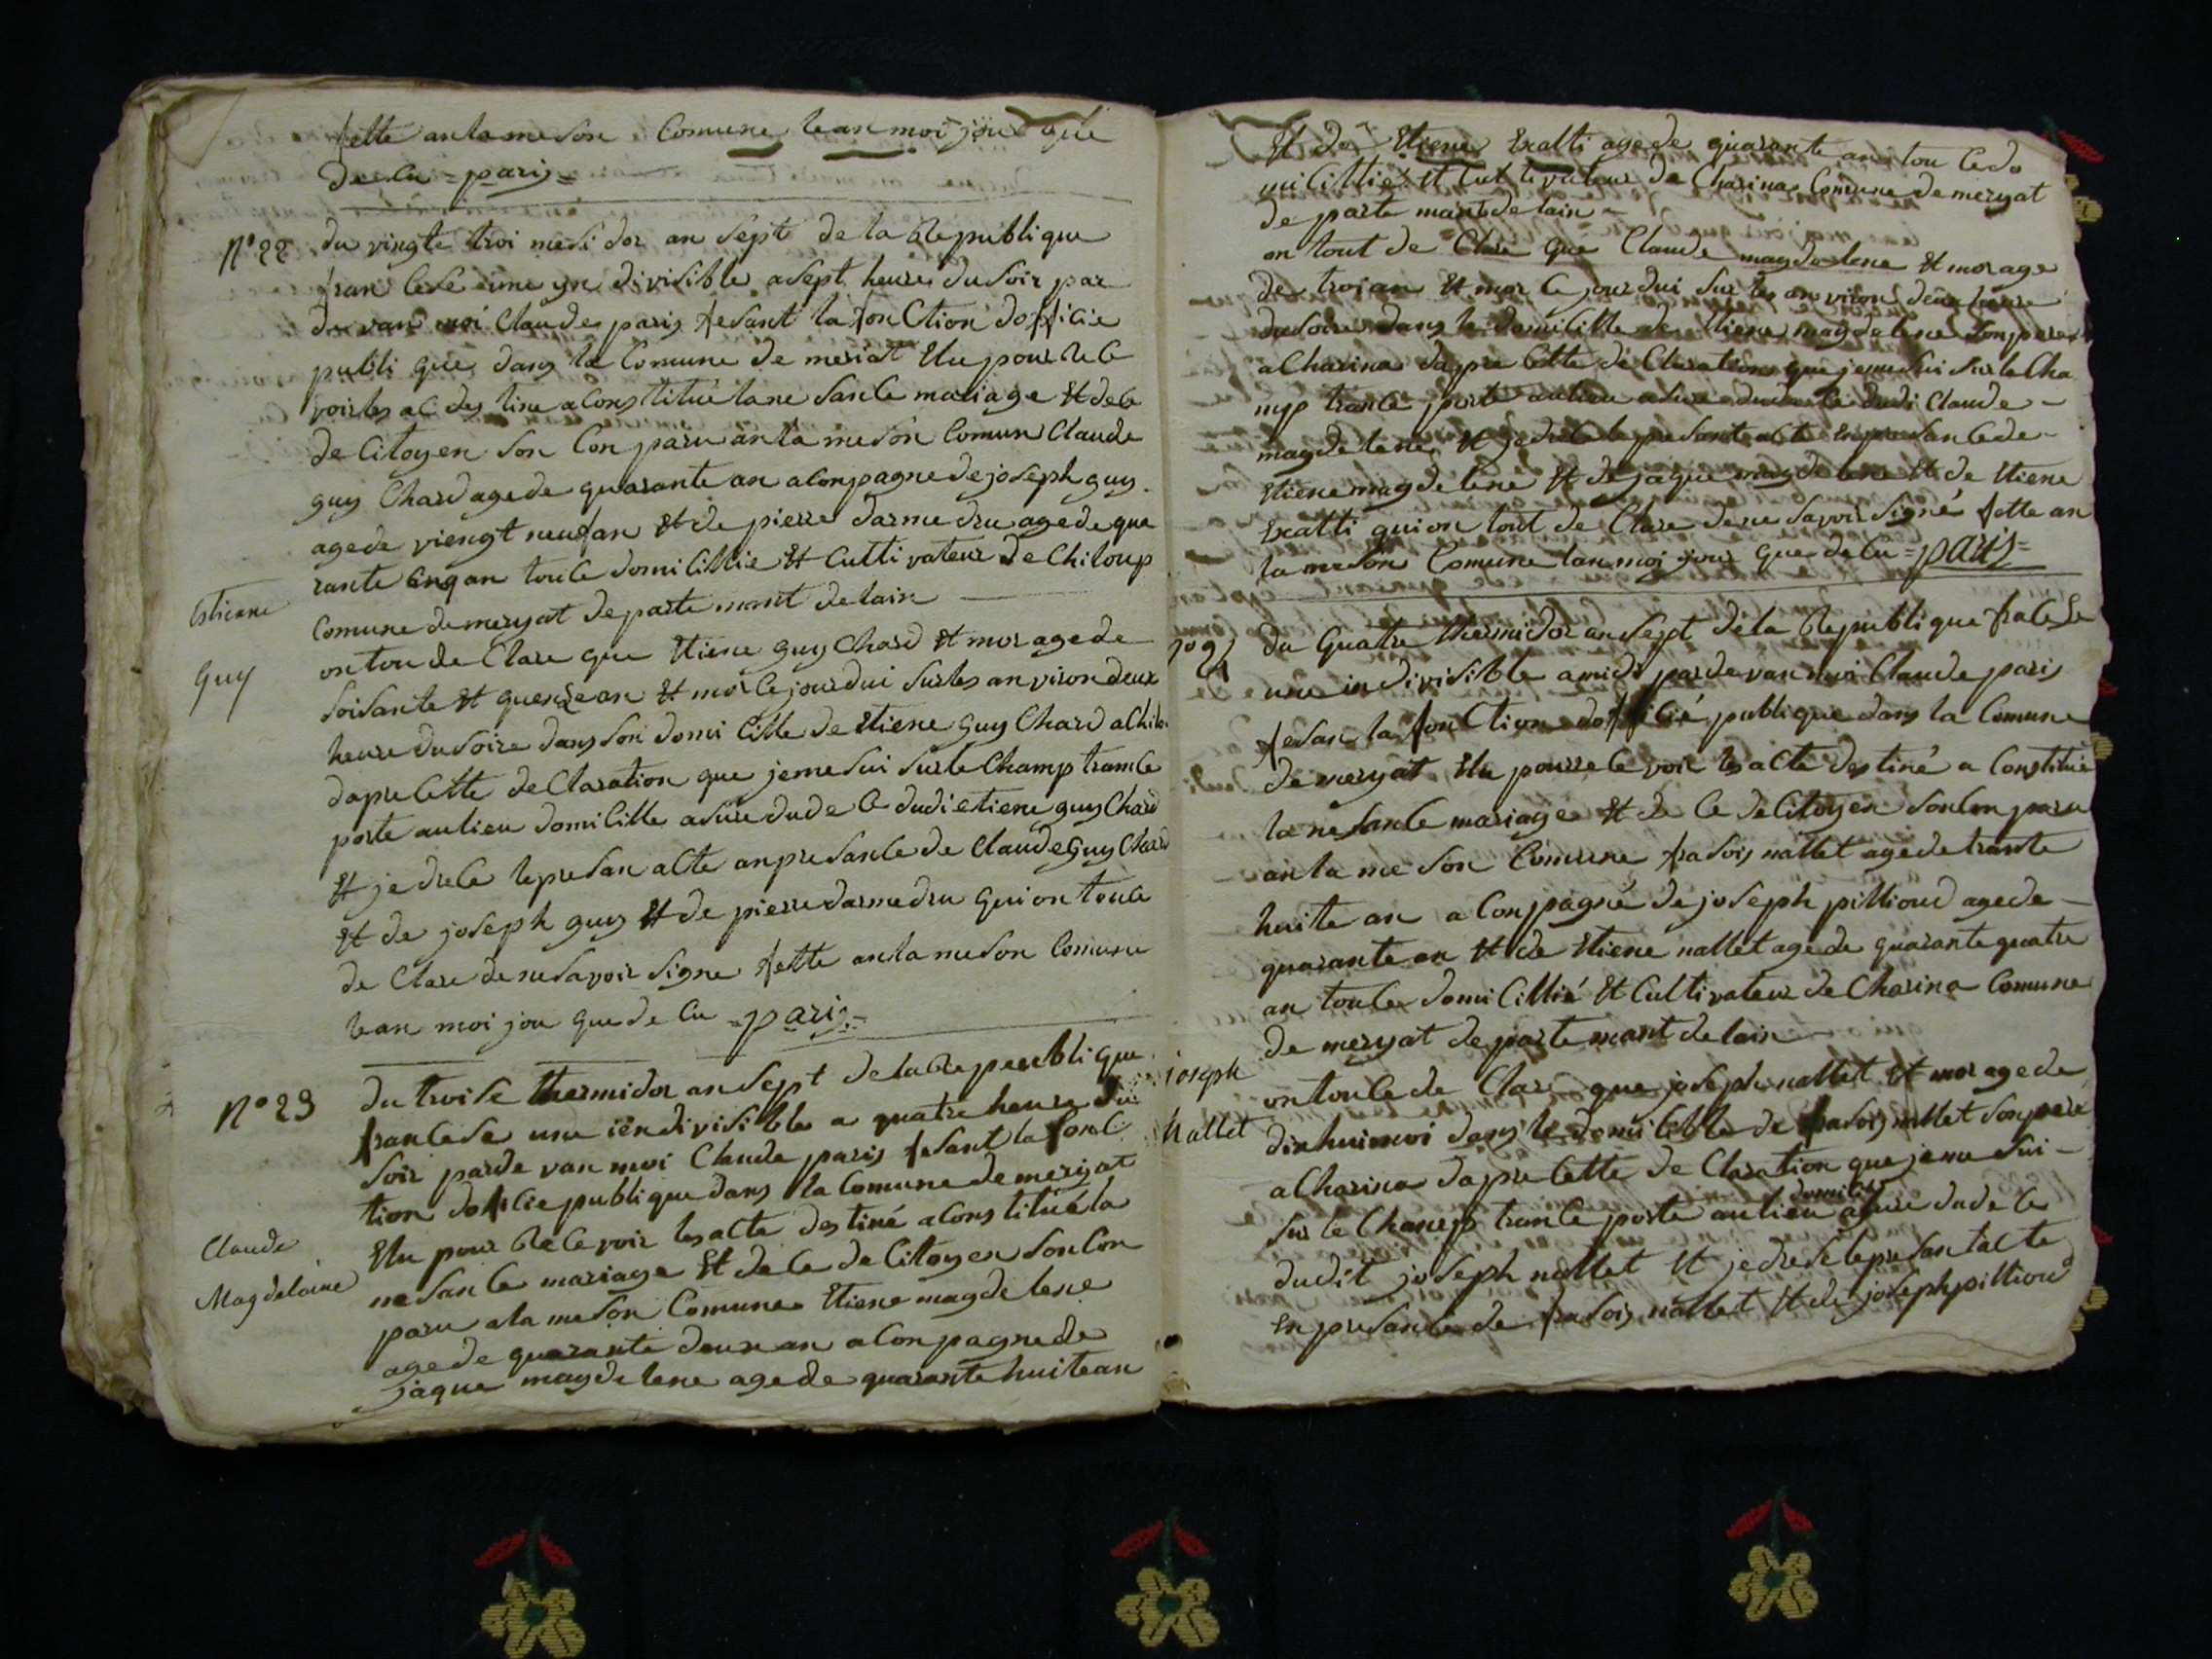 fette anlameson Comune lean moi jou que
de Cu = paris =
N° 22 du vingte troi mesi dor an sept de la Republique
fran Cese une yn divisible a sept heure du soir par
devan moi Claude paris fesant la fonCtion dofficie
publi que dans la Comune de meriat Elu pour Re Ce
voir les ac des tine a Constitué la ne Sance mariage Et de Ce
de Citoyen son Con paru an la meson Comun Claude
guy Chard age de quarante an aConpagne de joseph guy
age de viengt neuf an Et de pierre darme dru age de qua
rante Cinq an tou Ce domiCillie Et Cultivateur de Chiloup
Comune de meryat departe mant de lain
Estiene
Guy
on tou de Clare que Etiene guy Chard Et mor age de
soisante Et quenze an Et mor Ce jourdui sur les an viron deux
heure du soire dans son domi Cille de Etiene guy Chard a Chilou
dapre Cette de Claration que je me sui sur le Champ trance
porte au lieu domiCille asure du de Ce dudi etiene guy Chard
Et je drece le presan acte an presance de Claude guy Chard
Et de joseph guy Et de pierre darmedru qui on touCe
de Clare de ne savoir signe fette an la meson Comune
lean moi jou que de Cu = paris =
N° 23 du troise thermidor an sept de la Republique
francese une iendivisible a quatre heure du
soir parde van moi Claude paris fesant la fonC
tion doficie publique dans la Comune de meriyat
Elu pour ReCevoir les acte des tiné a Cons titué la
Claude
Magdelaine
ne sance mariage Et de Ce de Citoyen son Con
paru a la meson Comune Etiene magdelene
age de quarante deux an aConpagne de
jaque magdelene age de quarante huitean
Et de Etiene Exalti age de quarante an tou Ce do
miCillié Et Cultivateur de Charina Comune de meryat
de parte mant de lain
on tout de Clare que Claude magdelene Et mor age
de troi an Et mor Ce jourdui sur les anviron deux heure
du soire dans le domiCille de Etiene magdelene son pere
a Charina dapre Cette de Claration que je me sui sur le Cha
mp trance porte au lieu asure du de Ce dudi Claude
magdelene Et je drece le presante acte en presance de
Etiene magdelene Et de jaque magdelene Et de Etiene
Exalti qui on tout de Clare de ne savoir signé fette an
la meson Comune lan moi jour que de Cu = paris =
du quatre thermidor an sept de la Republique francese
une indivisible a midi parde van moi Claude paris
fesan la fonCtion dofficié publique dans la Comune
de meryat Elu pourre Ce voir les acte des tiné a Constitue
la ne sance mariage Et de Ce de Citoyen son Con paru
an la me son Comune frasois nallet age de trante
huite an a Conpagné de joseph pillioud age de
quarante an Et de Etiene nallet age de quarante quatre
an touCe domiCillié Et Cultivateur de Charina Comune
de meryat de parte mant de lain
joseph
nallet
on touCe de Clare que joseph nallet Et mor age de
dixhui moi dans le domiCille de frasois nallet son pere
a Charina dapre Cette de Claration que je me sui
sur le Champ trance porte au lieu domiCille asure du de Ce
dudit joseph nallet Et je drese le presant acte
en presance de frasois nallet Et de joseph pillioud